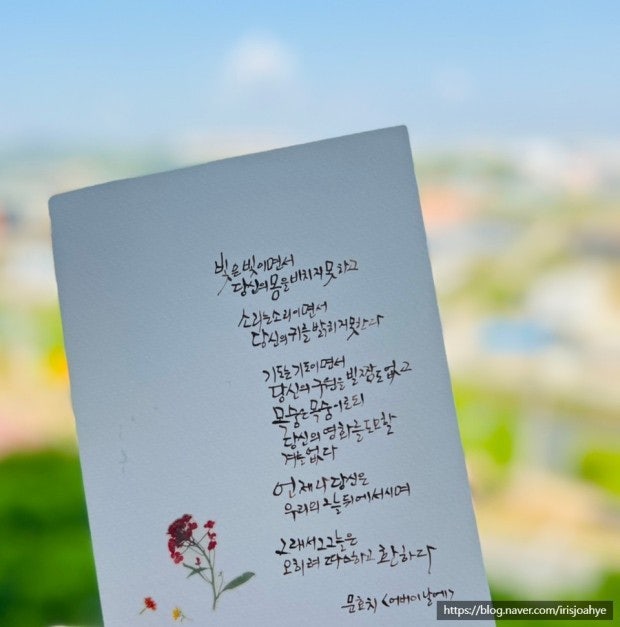 빛은 빛이면서
당신의 몸을 비치지 못하고
소리는 소리이면서
당신의 귀를 밝히지 못한다
기도는 기도이면서
당신의 구원을 빌 짬도 없고
목숨은 목숨이로되
당신의 영화를 도모할
겨를 없다
언제나 당신은
우리의 그늘 뒤에 서시며
그래서 그 그늘은
오히려 따스하고 환하다
문효치 <어버이날에>
https://blog.naver.com/irisjoahye